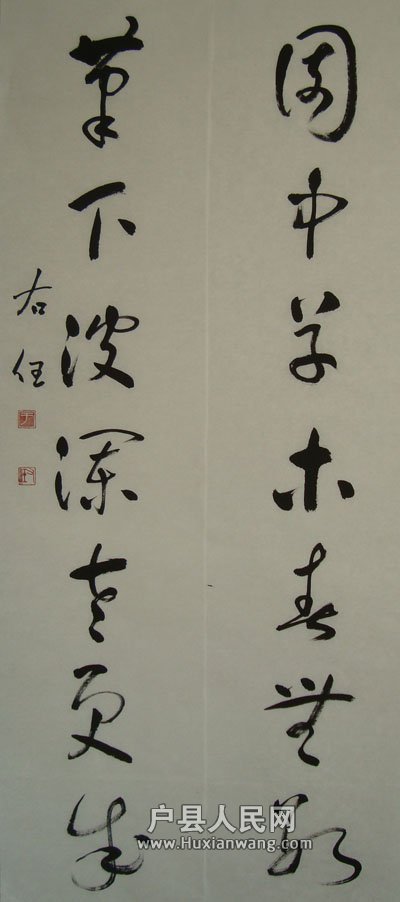 園中草木春無數
筆下波瀾老更成
右任
户县人民网
www.Huxianwang.com